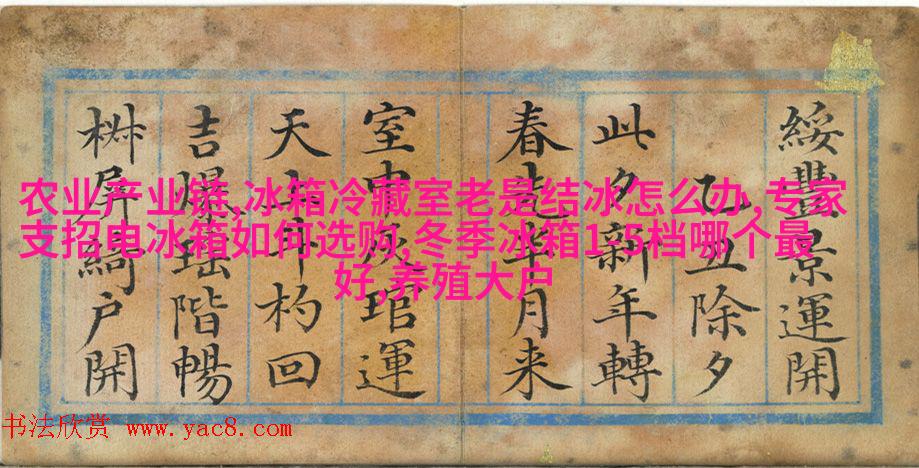 农业产业链,冰箱冷藏室老是结冰怎么办,专家
支招电冰箱如何选购,冬季冰箱1-5档哪个最
好,养殖大户
綏豐景運開
乙丑除夕
此夕新年轉
春月来
室中灰琯運
天上斗杓回
吉爆瑶階暢
椒屏綺户開
书法欣赏 www.yac8.com